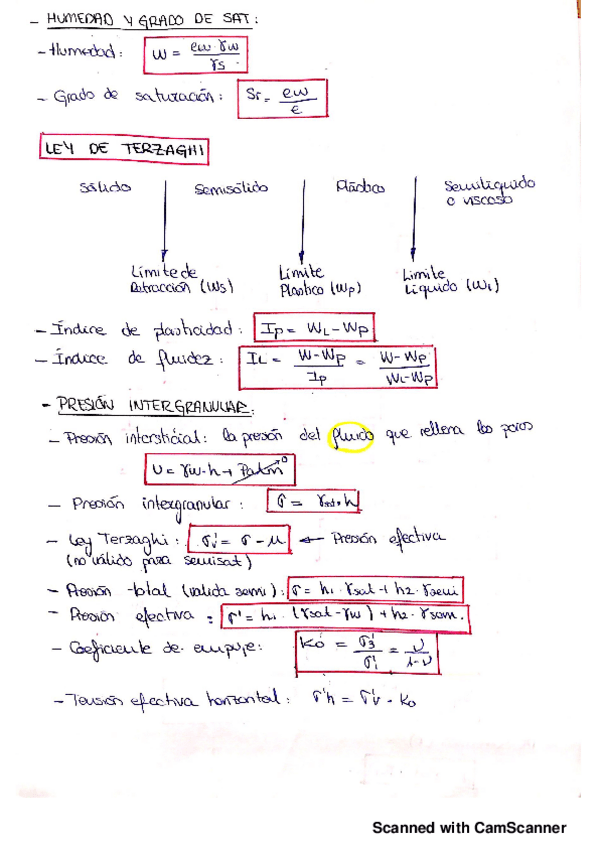 - HUMEDAD Y GRADO DE SAT:
- Humedad: W = ew · γw / γs
- Grado de saturación: Sr = ew / e
LEY DE TERZAGHI
Sólido Semisólido Plástico Semilíquido o viscoso
Límite de Retracción (Ws) Límite Plástico (Wp) Límite Líquido (WL)
- Índice de plasticidad: Ip = WL - Wp
- Índice de fluidez: IL = W - Wp / Ip = W - Wp / WL - Wp
- PRESIÓN INTERGRANULAR:
- Presión intersticial: la presión del fluido que rellena los poros
U = γw · h + Patm 0
- Presión intergranular: σ = γsat · h
- Ley Terzaghi: σ' = σ - μ ← Presión efectiva
(no válido para semisat)
- Presión total (válida semi): σ = h1 · γsat + h2 · γsemi
- Presión efectiva: σ' = h1 · (γsat - γw) + h2 · γsem.
- Coeficiente de empuje: Ko = σ'3 / σ'1 = ν / 1 - ν
- Tensión efectiva horizontal: σ'h = σ'v · Ko
Scanned with CamScanner